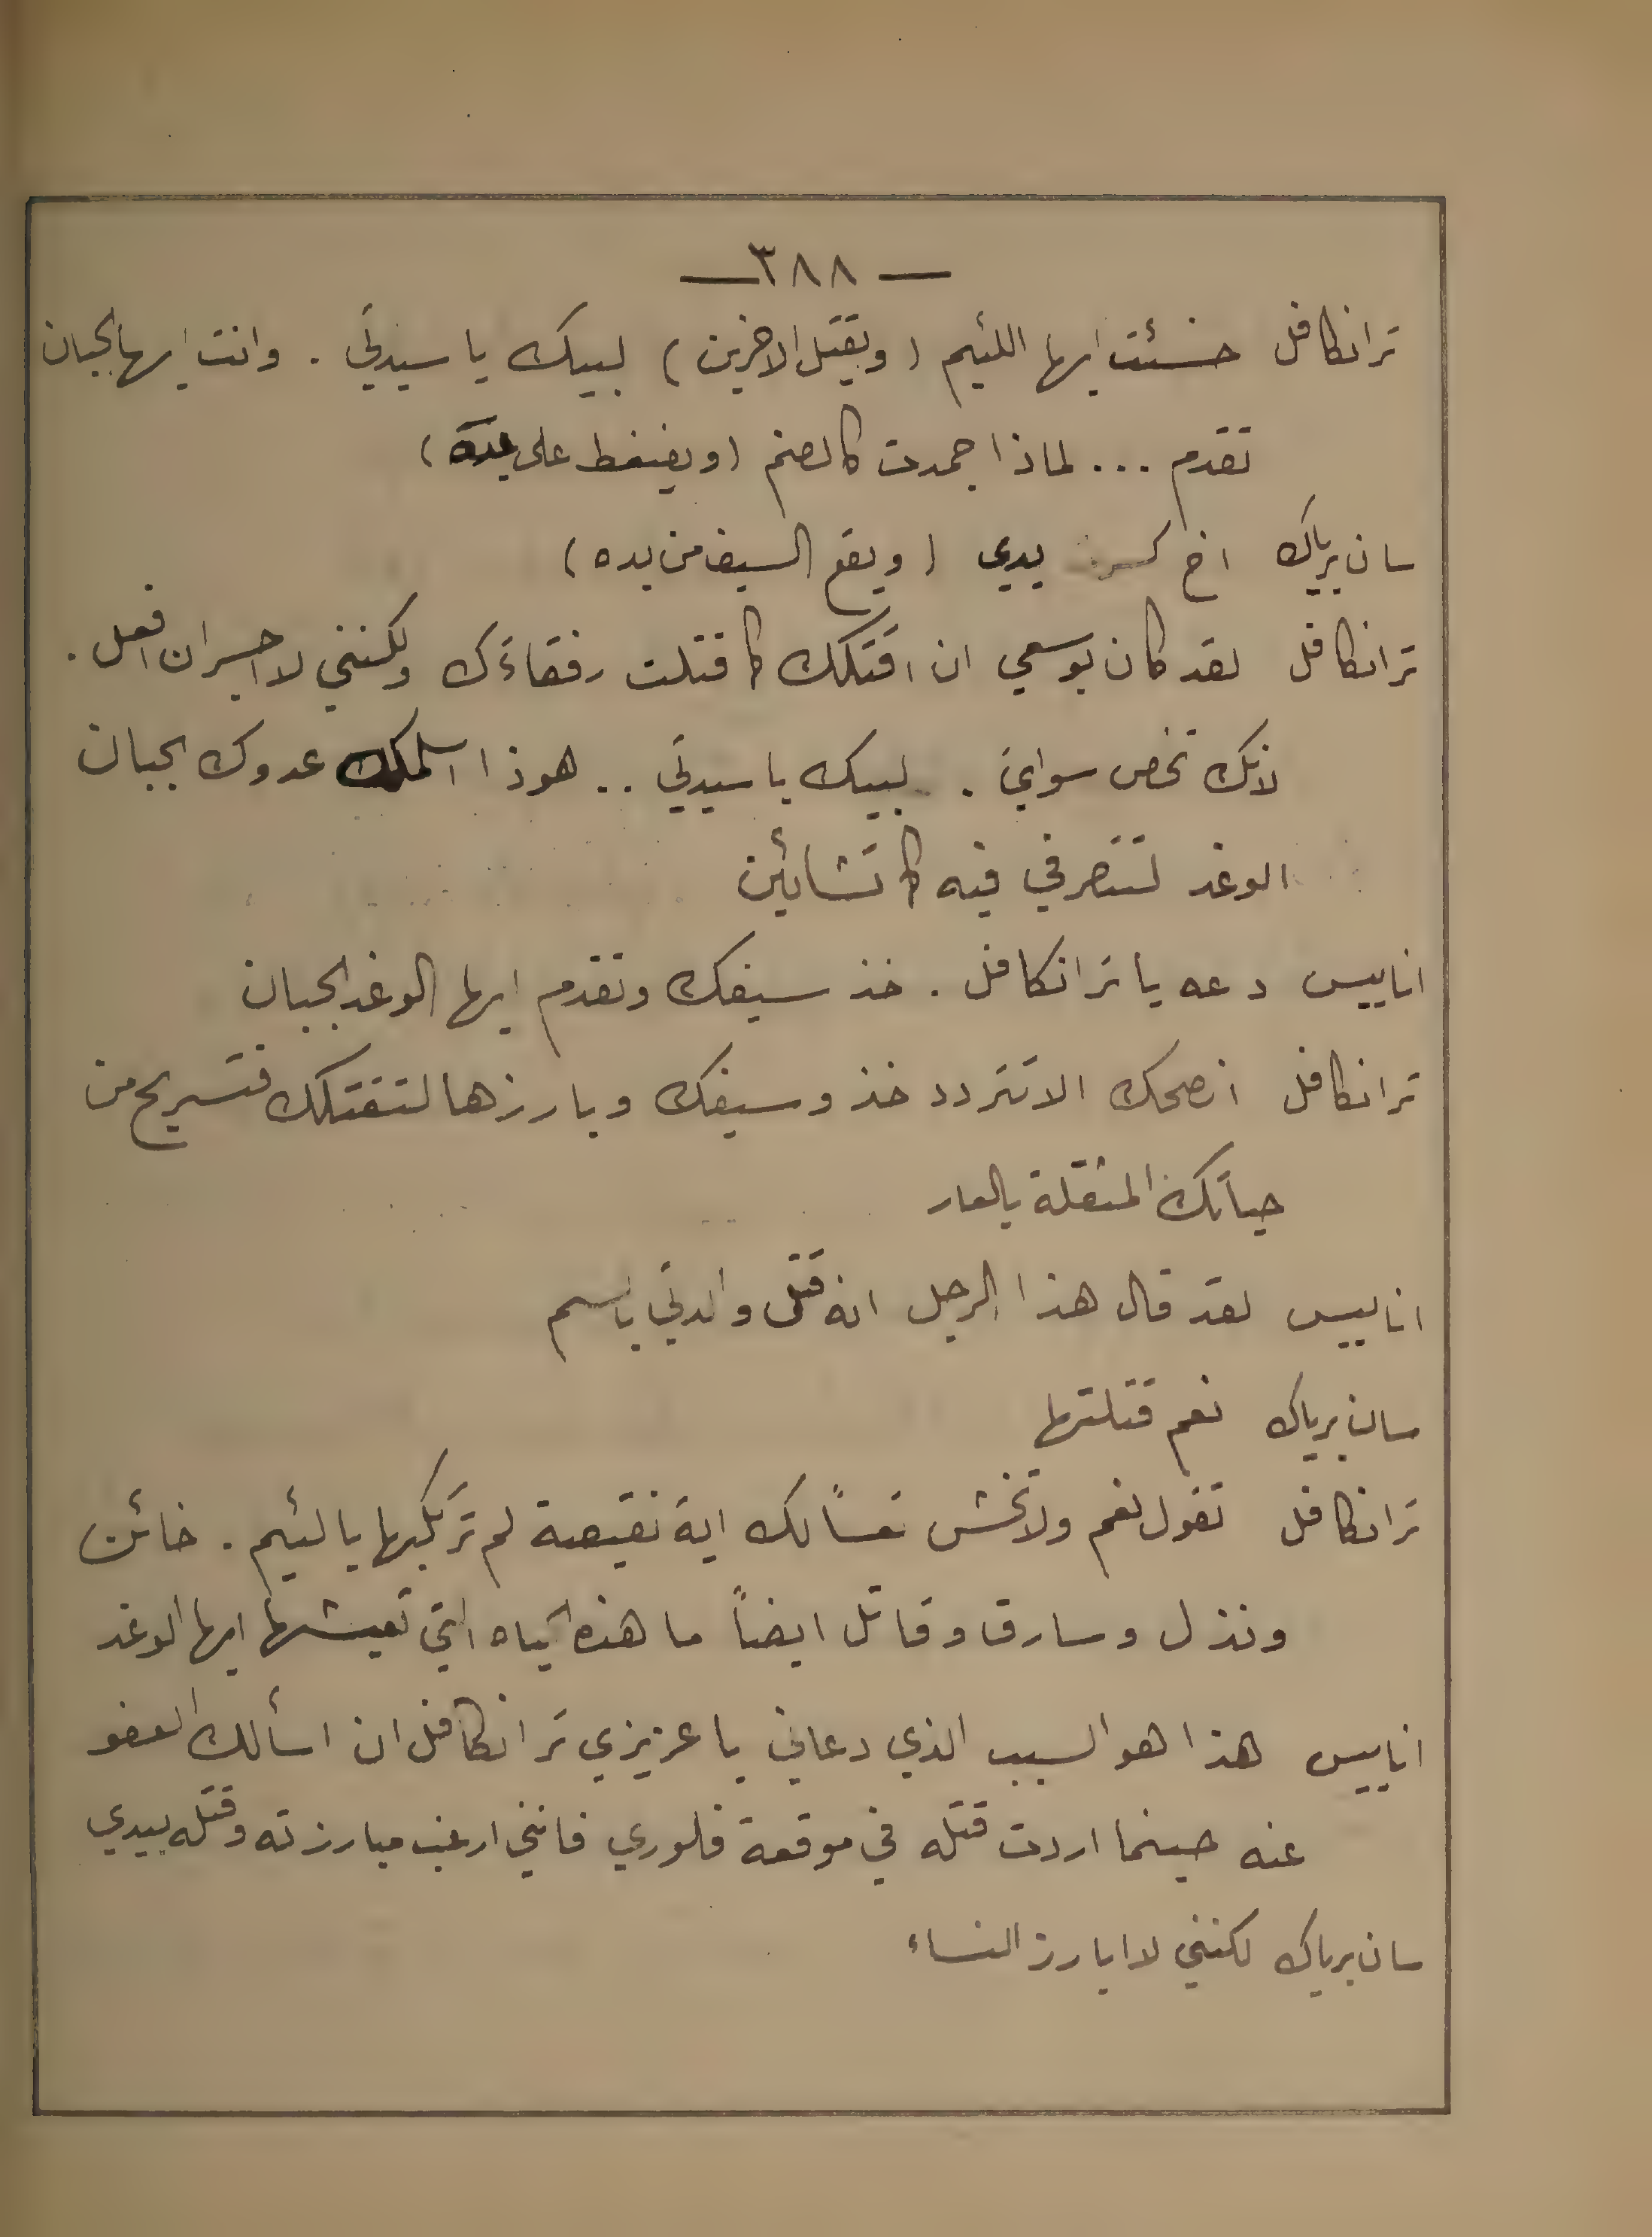 — ٣٨٨ —
ترانكافل خسئت ايها اللئيم (ويقتل الاخرين) لبيك يا سيدتي . وانت ايها الجبان
تقدم ... لماذا جمدت كالصنم (ويضغط على يده)
سان برياك اخ كسرت يدي (ويقع السيف من يده)
ترانكافل لقد كان بوسعي ان اقتلك كما قتلت رفقاءك ولكنني لا اجسر ان افعل .
لانك تخص سواي . لبيك يا سيدتي .. هوذا اسلمك عدوك بجبان
الوغد لتتصرفي فيه كما تشائين
اناييس دعه يا ترانكافل . خذ سيفك وتقدم ايها الوغد الجبان
ترانكافل انصحك الا تتردد خذ وسيفك وبارزها لتقتلك فتسريح من
حياتك المثقلة بالعار
اناييس لقد قال هذا الرجل انه قتل والدتي بالسم
سان برياك نعم قتلتها
ترانكافل تقول نعم ولا تخش تعسًا لك اية نقيصة لم ترتكبها يا لئيم . خائن
ونذل وسارق وقاتل ايضاً ما هذه الحياه التي تعيشها ايها الوغد
اناييس هذا هو السبب الذي دعاني يا عزيزي ترانكافل ان اسألك العفو
عنه حينما اردت قتله في موقعة فلوري فانني ارغب مبارزته وقتله بيدي
سان برياك لكنني لا ابارز النساء